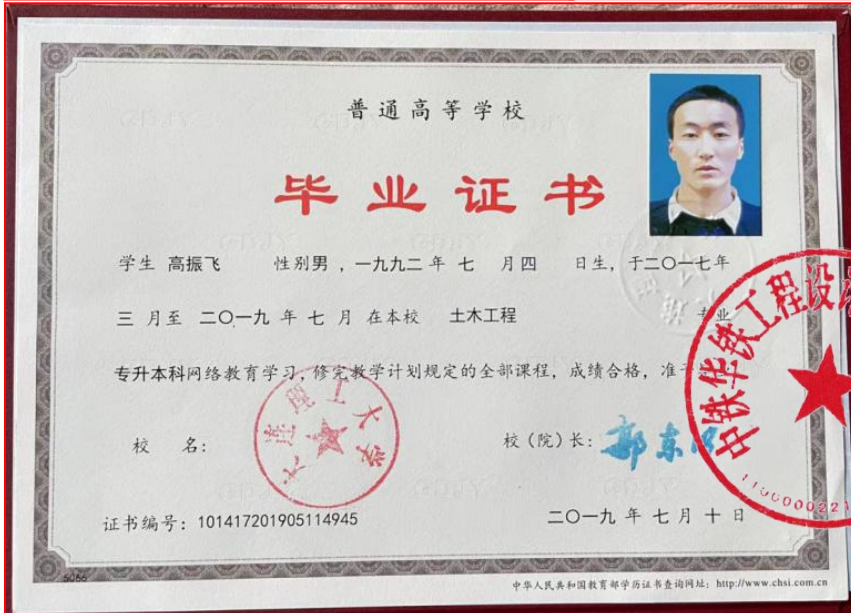 普通高等学校
毕业证书
学生 高振飞 性别男，一九九二年 七 月四 日生，于二〇一七年
三 月至 二〇一九 年 七 月 在本校 土木工程 专业
专升本科网络教育学习，修完教学计划规定的全部课程，成绩合格，准予
校 名：
大连理工大学
校（院）长：郭东明
证书编号：101417201905114945
二〇一九 年 七 月 十 日
中铁华铁工程设
5066
中华人民共和国教育部学历证书查询网址：http://www.chsi.com.cn